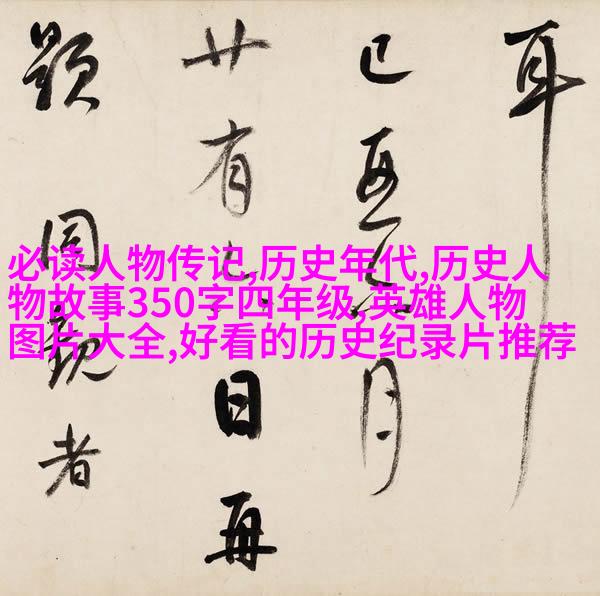 耳
己亥月
廿有日再
題同觀者
必读人物传记,历史年代,历史人
物故事350字四年级,英雄人物
图片大全,好看的历史纪录片推荐